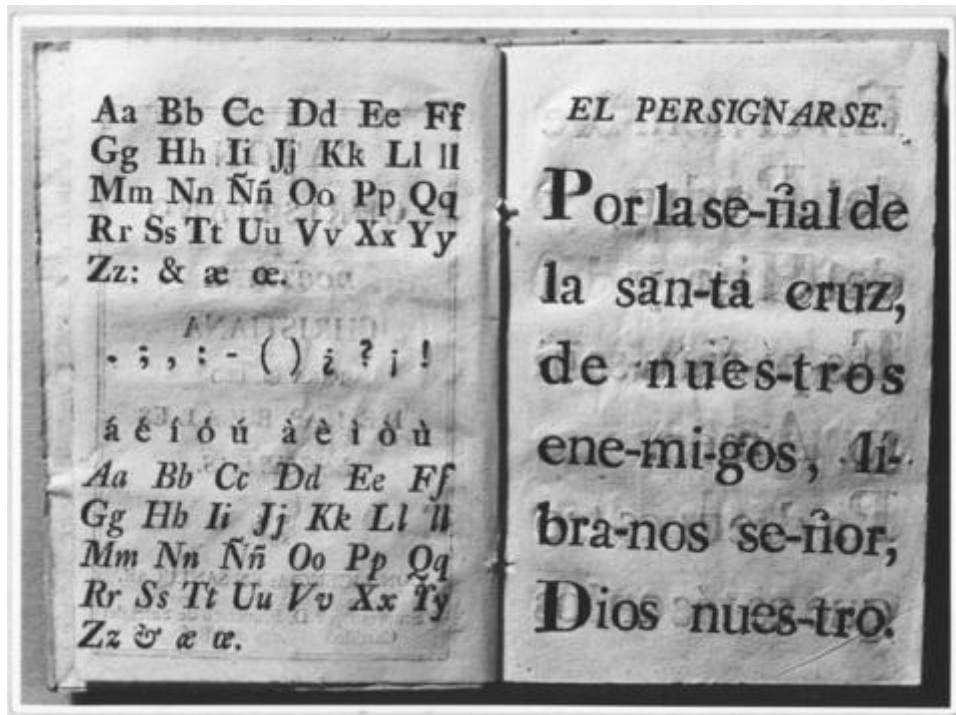 Aa Bb Cc Dd Ee Ff
Gg Hh Ii Jj Kk Ll ll
Mm Nn Ññ Oo Pp Qq
Rr Ss Tt Uu Vv Xx Yy
Zz: & æ œ.
. ; , : - ( ) ¿ ? ¡ !
á é í ó ú à è ì ò ù
Aa Bb Cc Dd Ee Ff
Gg Hh Ii Jj Kk Ll ll
Mm Nn Ññ Oo Pp Qq
Rr Ss Tt Uu Vv Xx Yy
Zz & æ œ.
EL PERSIGNARSE.
Por la se-ñal de
la san-ta cruz,
de nues-tros
ene-mi-gos, lí-
bra-nos se-ñor,
Dios nues-tro.